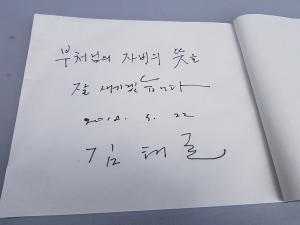 부처님의 자비의 뜻을
잘 새기겠습니다
2018. 5. 22
김태호